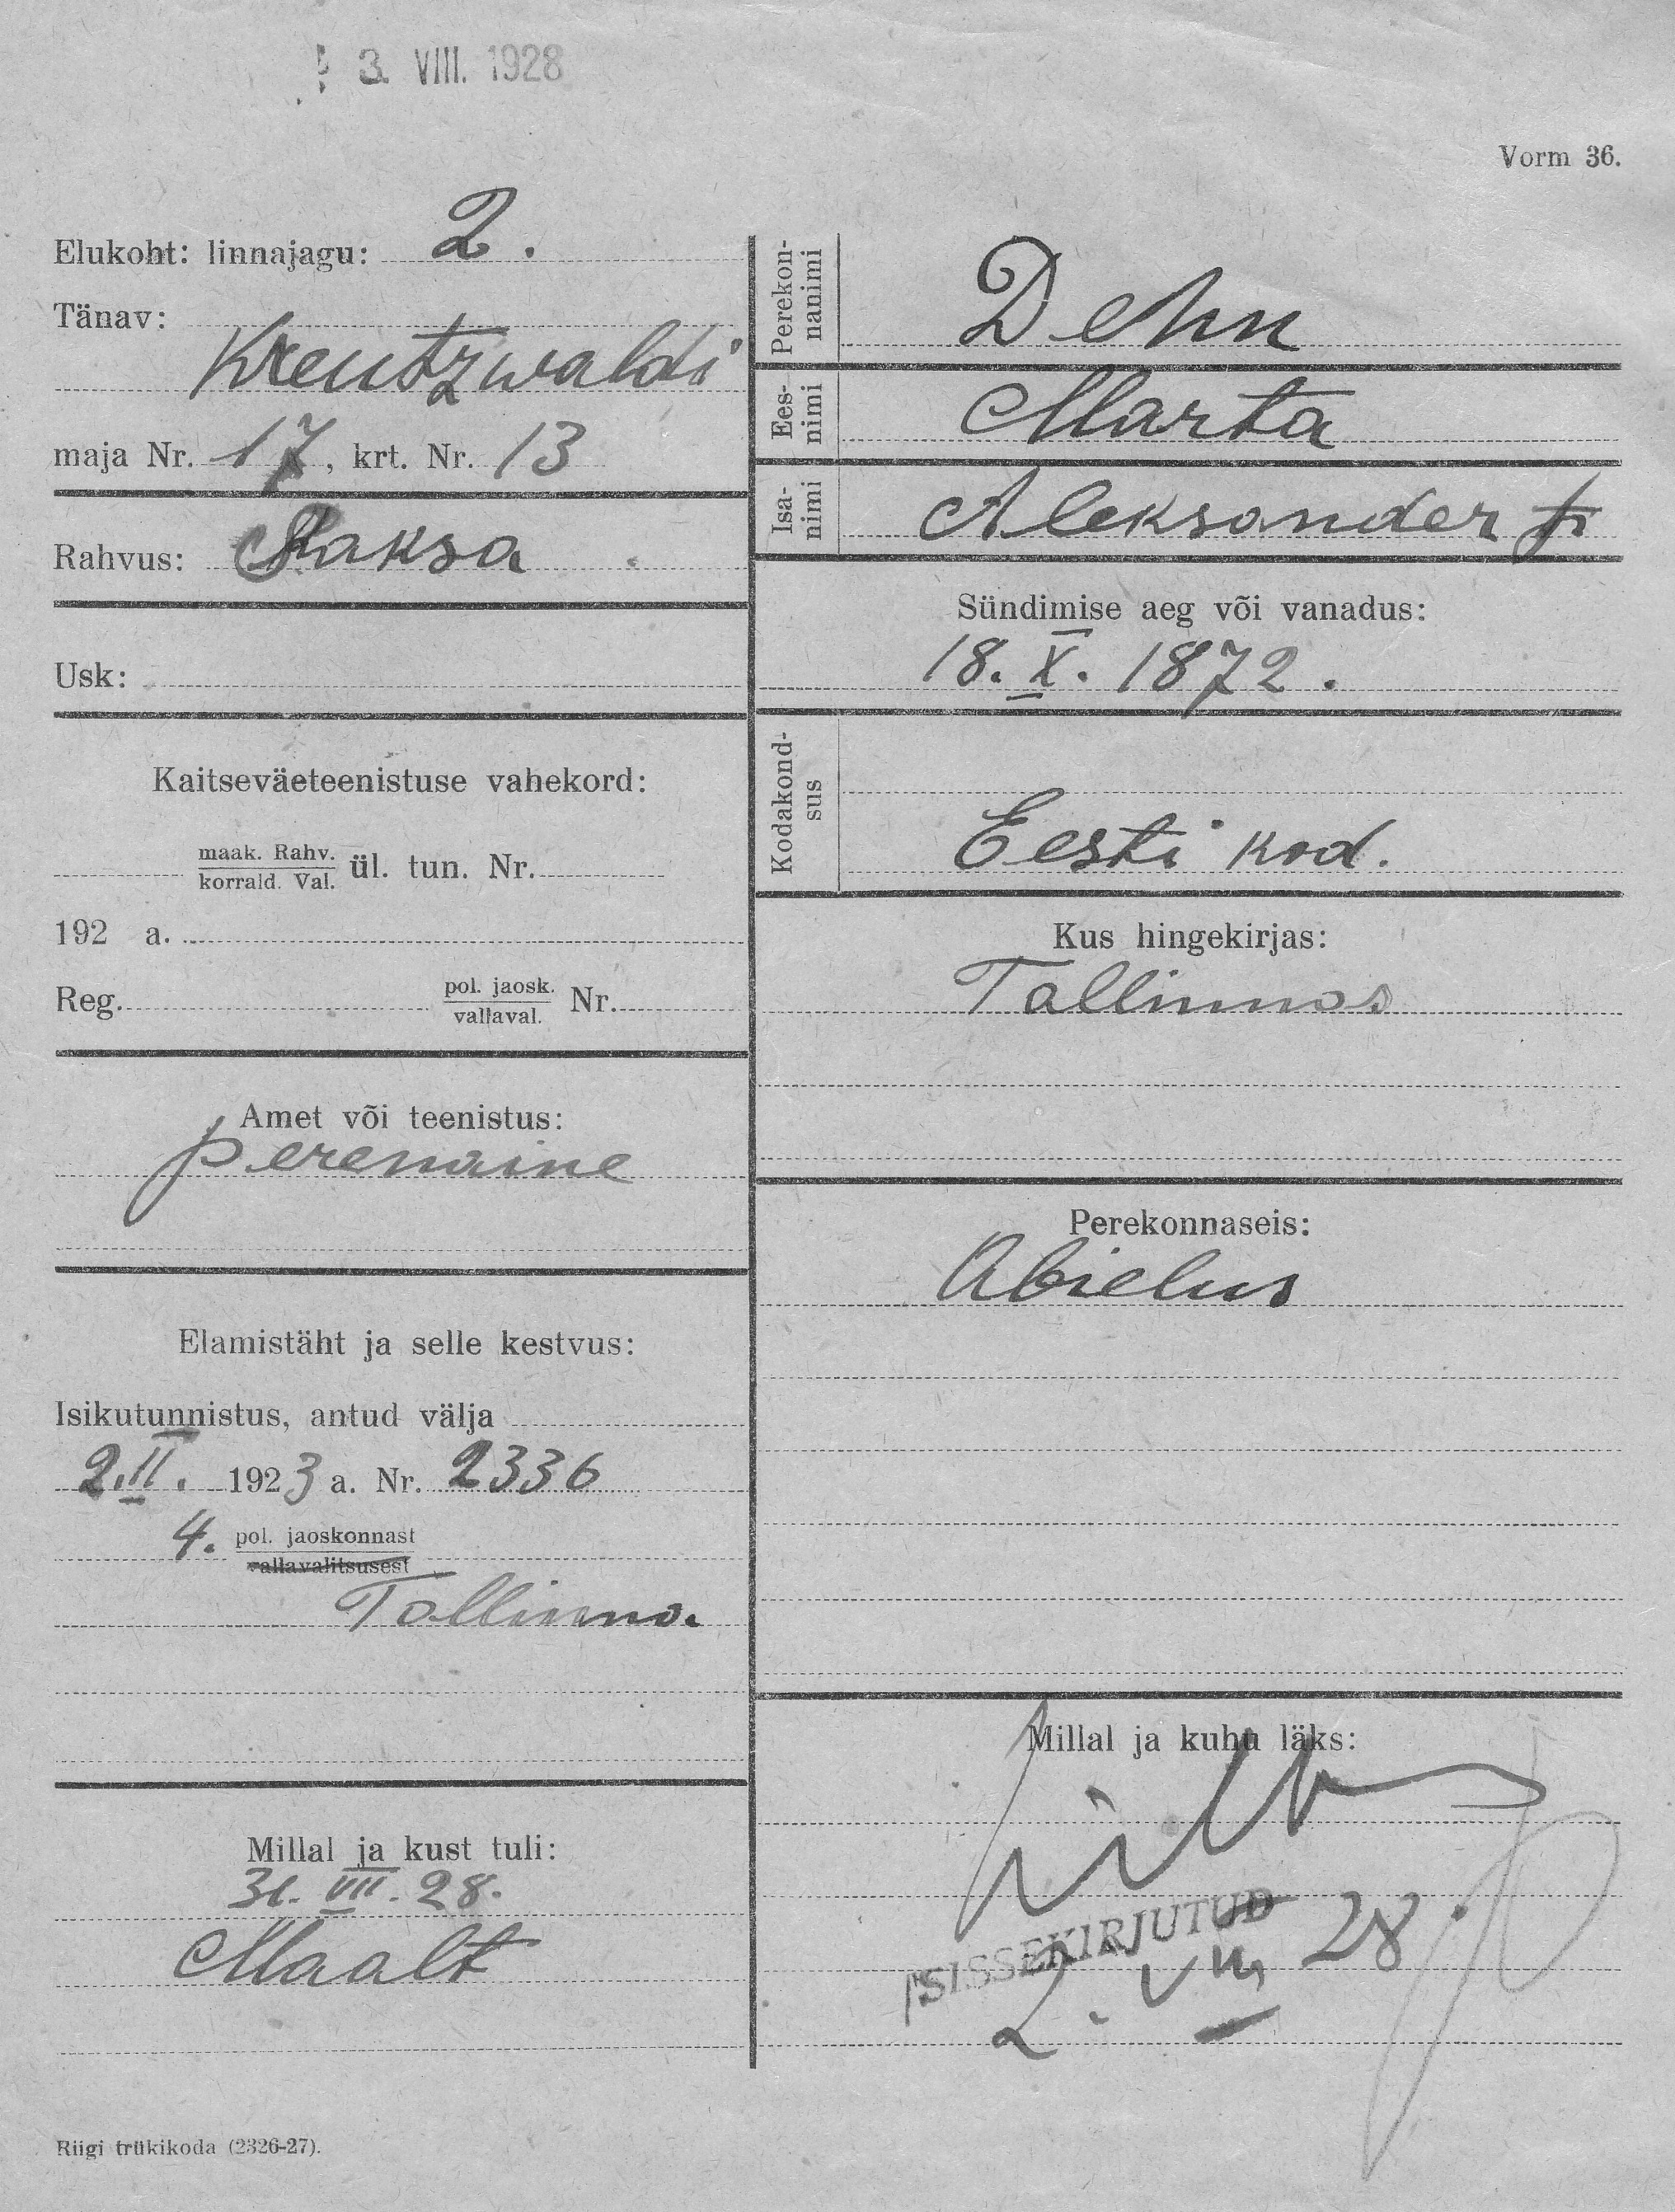 3. VIII. 1928
Vorm 36.
Elukoht: linnajagu: 2.
Tänav:
Kreutzwaldi
maja Nr. 17, krt. Nr. 13
Rahvus: Saksa
Usk:
Kaitseväeteenistuse vahekord:
maak. Rahv.
korrald. Val. ül. tun. Nr.
192 a.
Reg. pol. jaosk. Nr.
vallaval.
Amet või teenistus:
perenaine
Elamistäht ja selle kestvus:
Isikutunnistus, antud välja
2.II. 1923 a. Nr. 2336
4. pol. jaoskonnast
vallavalitsusest
Tallinna.
Millal ja kust tuli:
31. VII. 28.
Maalt
Perekon-
nanimi
Dehn
Ees-
nimi
Marta
Isa-
nimi
Aleksander
Sündimise aeg või vanadus:
18. X. 1872.
Kodakond-
sus
Eesti kod.
Kus hingekirjas:
Tallinnas
Perekonnaseis:
Abielus
Millal ja kuhu läks:
SISSEKIRJUTUD
2. VIII 28.
Riigi trükikoda (2326-27).